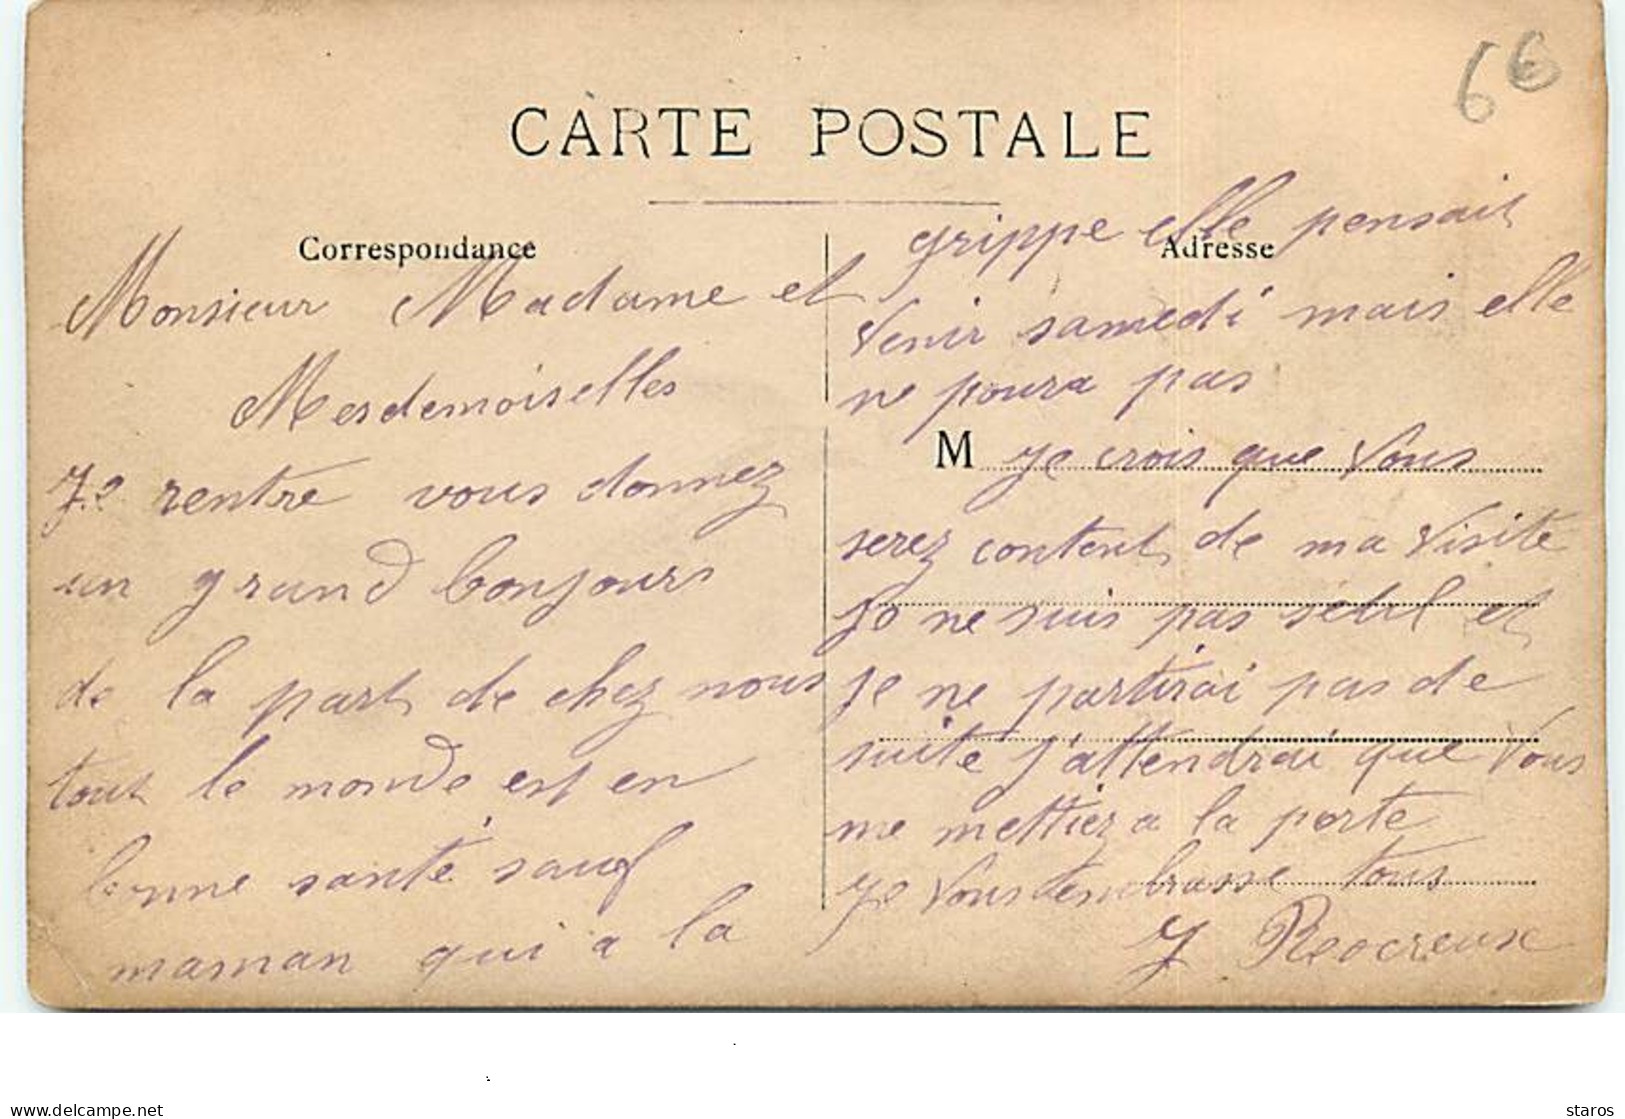 66
CARTE POSTALE
Correspondance
Monsieur Madame et
Mesdemoiselles
Je rentre vous donnez
un grand bonjours
de la part de chez nous
tout le monde est en
bonne santé sauf
maman qui a la
Adresse
grippe elle pensait
venir samedi mais elle
ne poura pas
M je crois que vous
serez content de ma visite
je ne suis pas seul et
je ne partirai pas de
suite j'attendrai que vous
me mettiez a la porte
je vous embrasse tous
J Reocreux
delcampe.net
staros